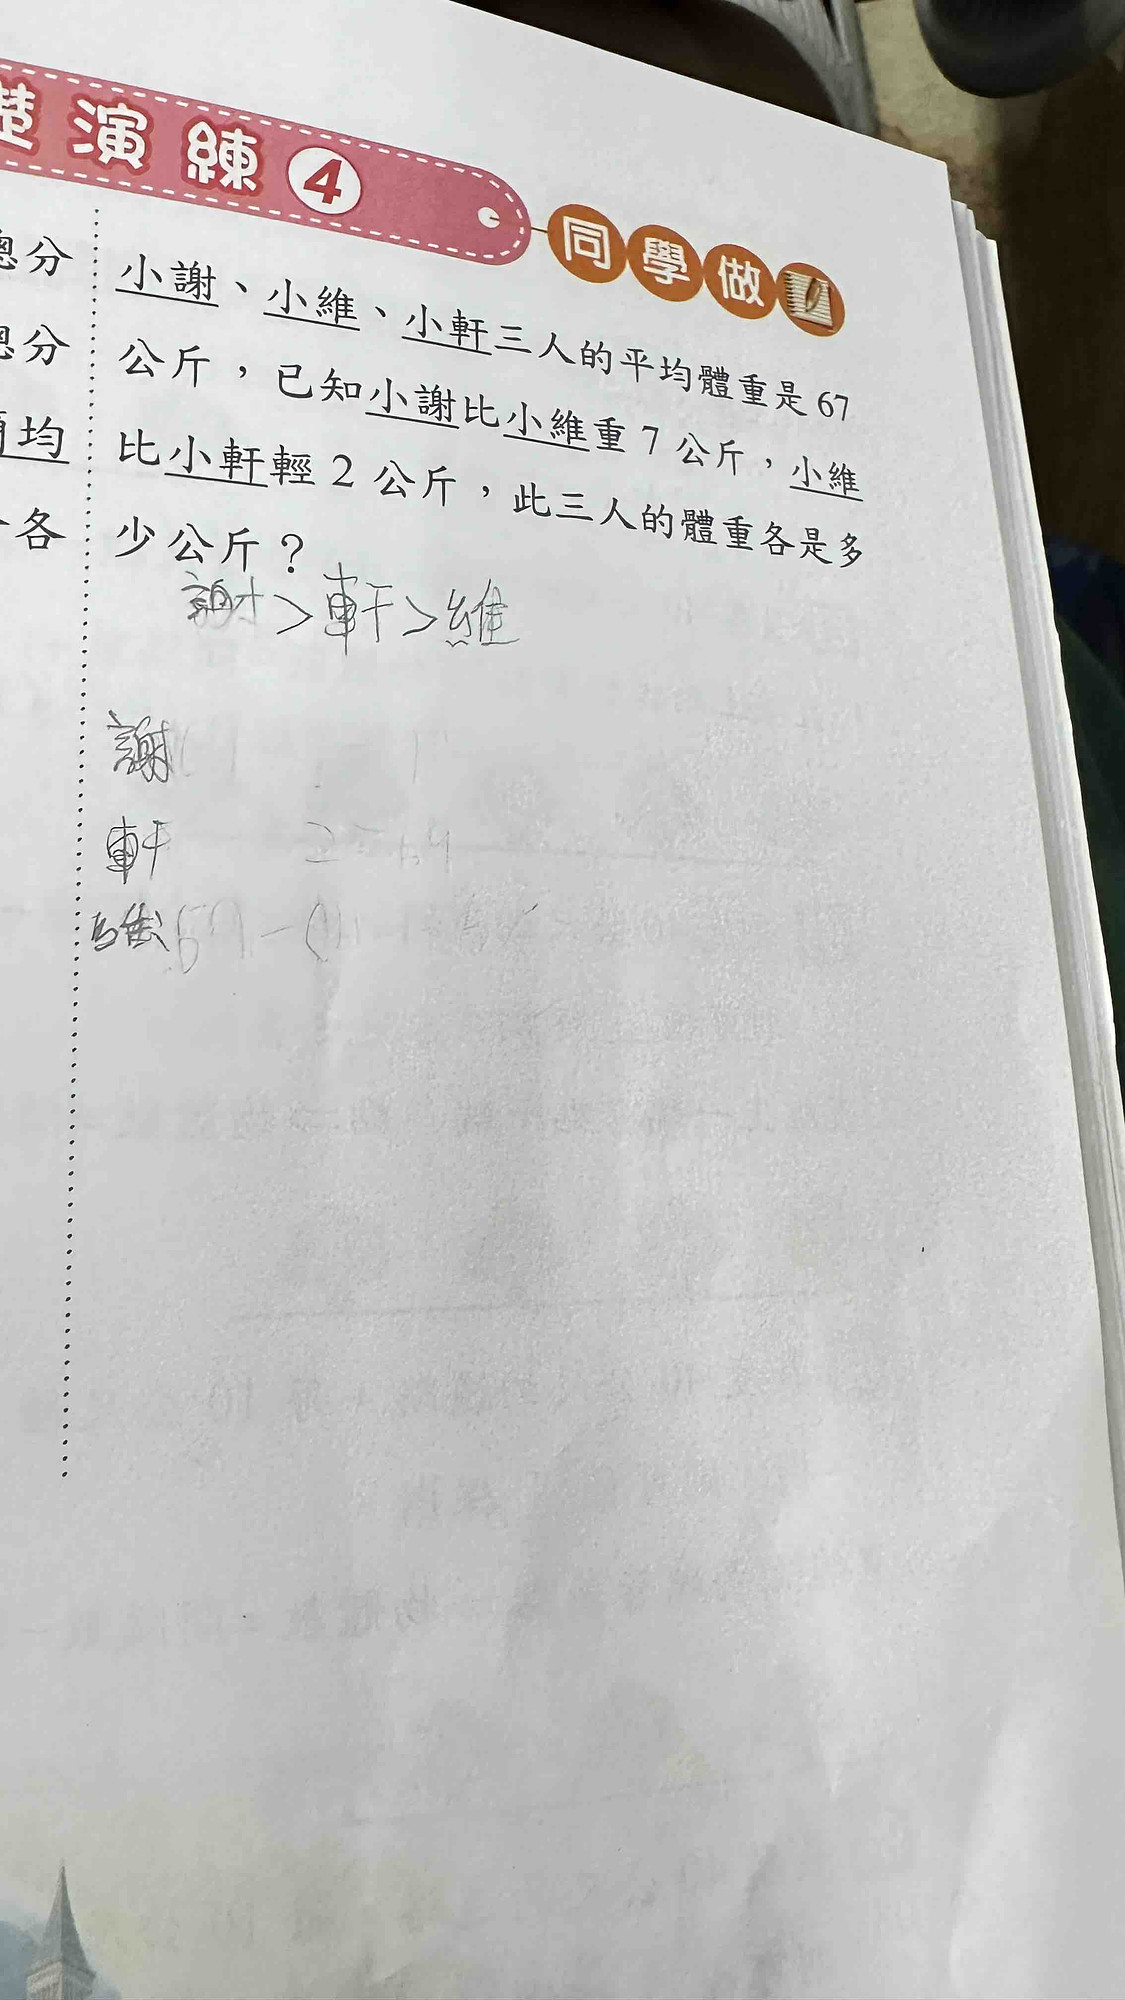 楚演練4
同學做
總分
總分
均
各
小謝、小維、小軒三人的平均體重是67
公斤，已知小謝比小維重7公斤，小維
比小軒輕2公斤，此三人的體重各是多
少公斤？
謝>軒>維
謝
軒 2=64
維